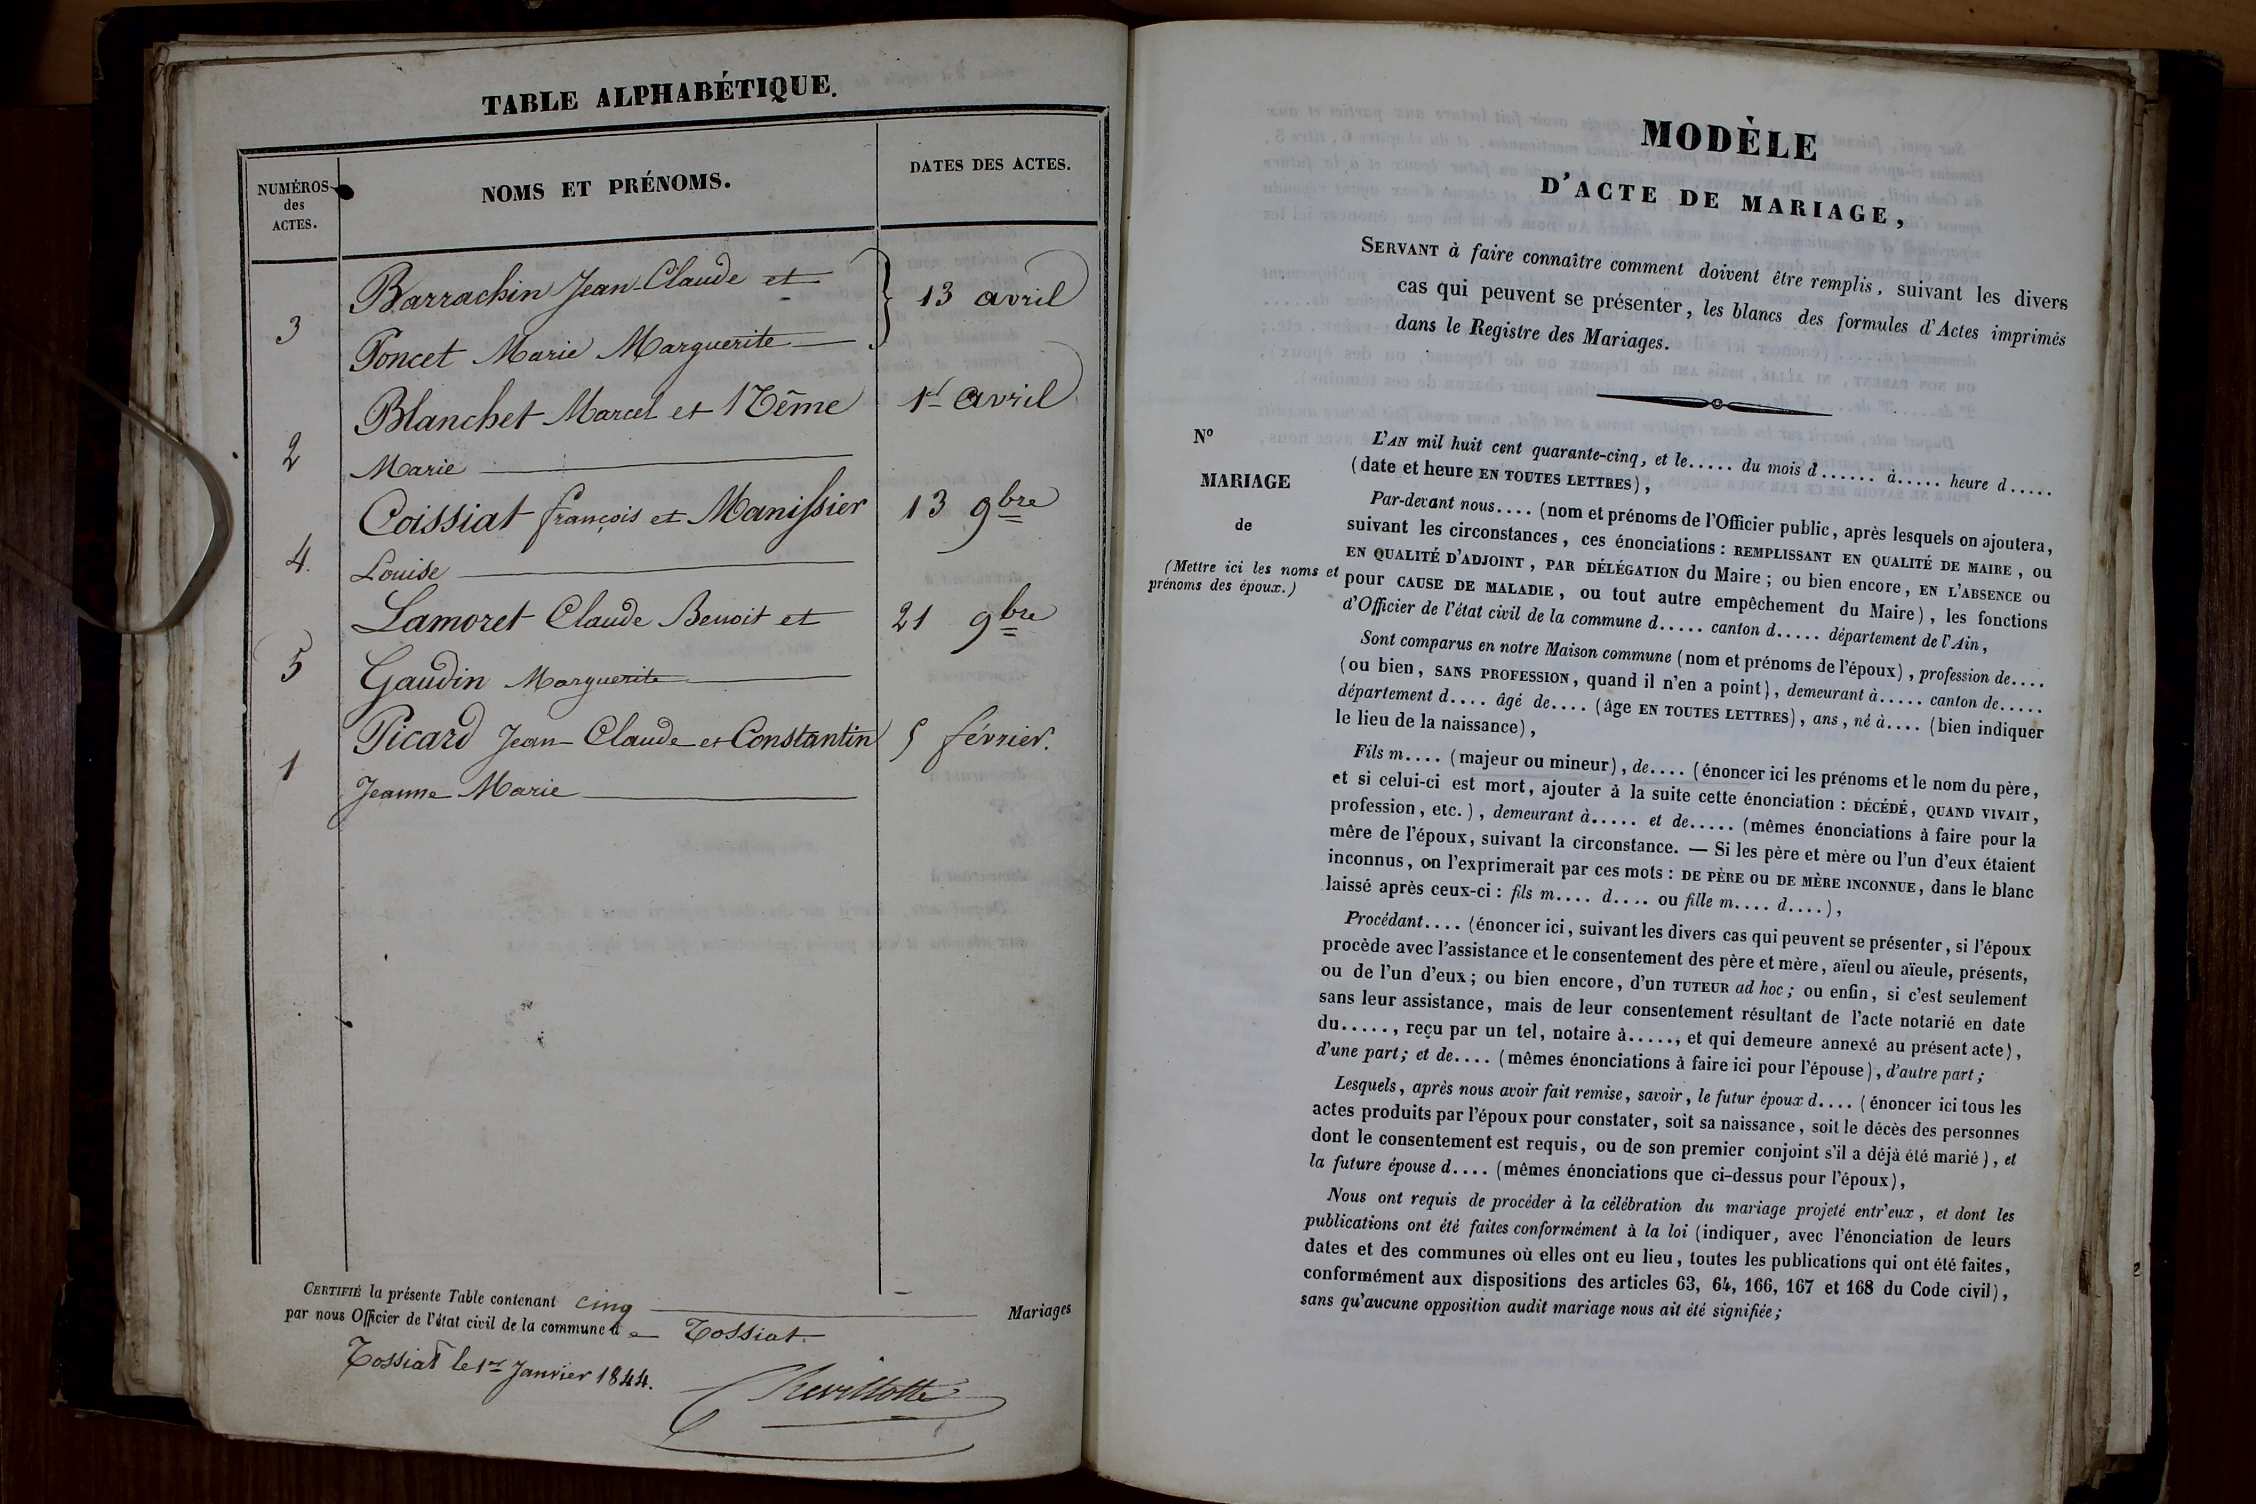 TABLE ALPHABÉTIQUE.
NUMÉROS
des
ACTES.
NOMS ET PRÉNOMS.
DATES DES ACTES.
Barrachin Jean-Claude et
13 avril
3
Poncet Marie Marguerite
Blanchet Marcel et
1er avril
2
Marie
Coissiat françois et Manissier
13 9bre
4.
Louise
Lamoret Claude Benoit et
21 9bre
5
Gaudin Marguerite
Picard Jean-Claude et Constantin
5 février.
1
Jeanne Marie
CERTIFIÉ la présente Table contenant cinq Mariages
par nous Officier de l'état civil de la commune de Tossiat.
Tossiat le 1er Janvier 1844.
Chevillotte
MODÈLE
D'ACTE DE MARIAGE,
SERVANT à faire connaître comment doivent être remplis, suivant les divers
cas qui peuvent se présenter, les blancs des formules d'Actes imprimés
dans le Registre des Mariages.
N°
MARIAGE
de
(Mettre ici les noms et
prénoms des époux.)
L'AN mil huit cent quarante-cinq, et le..... du mois d...... à..... heure d.....
(date et heure EN TOUTES LETTRES),
Par-devant nous.... (nom et prénoms de l'Officier public, après lesquels on ajoutera,
suivant les circonstances, ces énonciations: REMPLISSANT EN QUALITÉ DE MAIRE, ou
EN QUALITÉ D'ADJOINT, PAR DÉLÉGATION du Maire; ou bien encore, EN L'ABSENCE ou
pour CAUSE DE MALADIE, ou tout autre empêchement du Maire), les fonctions
d'Officier de l'état civil de la commune d..... canton d..... département de l'Ain,
Sont comparus en notre Maison commune (nom et prénoms de l'époux), profession de....
(ou bien, SANS PROFESSION, quand il n'en a point), demeurant à..... canton de.....
département d.... âgé de.... (âge EN TOUTES LETTRES), ans, né à.... (bien indiquer
le lieu de la naissance),
Fils m.... (majeur ou mineur), de.... (énoncer ici les prénoms et le nom du père,
et si celui-ci est mort, ajouter à la suite cette énonciation: DÉCÉDÉ, QUAND VIVAIT,
profession, etc.), demeurant à..... et de..... (mêmes énonciations à faire pour la
mère de l'époux, suivant la circonstance. — Si les père et mère ou l'un d'eux étaient
inconnus, on l'exprimerait par ces mots: DE PÈRE ou DE MÈRE INCONNUE, dans le blanc
laissé après ceux-ci: fils m.... d.... ou fille m.... d....),
Procédant.... (énoncer ici, suivant les divers cas qui peuvent se présenter, si l'époux
procède avec l'assistance et le consentement des père et mère, aïeul ou aïeule, présents,
ou de l'un d'eux; ou bien encore, d'un TUTEUR ad hoc; ou enfin, si c'est seulement
sans leur assistance, mais de leur consentement résultant de l'acte notarié en date
du....., reçu par un tel, notaire à....., et qui demeure annexé au présent acte),
d'une part; et de.... (mêmes énonciations à faire ici pour l'épouse), d'autre part;
Lesquels, après nous avoir fait remise, savoir, le futur époux d.... (énoncer ici tous les
actes produits par l'époux pour constater, soit sa naissance, soit le décès des personnes
dont le consentement est requis, ou de son premier conjoint s'il a déjà été marié), et
la future épouse d.... (mêmes énonciations que ci-dessus pour l'époux),
Nous ont requis de procéder à la célébration du mariage projeté entr'eux, et dont les
publications ont été faites conformément à la loi (indiquer, avec l'énonciation de leurs
dates et des communes où elles ont eu lieu, toutes les publications qui ont été faites,
conformément aux dispositions des articles 63, 64, 166, 167 et 168 du Code civil),
sans qu'aucune opposition audit mariage nous ait été signifiée;